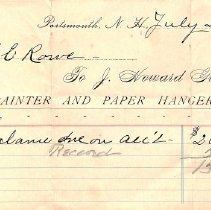 Portsmouth, N. H. July
C Rowe
To J. Howard
PAINTER AND PAPER HANGER
balance due on acc't
Record